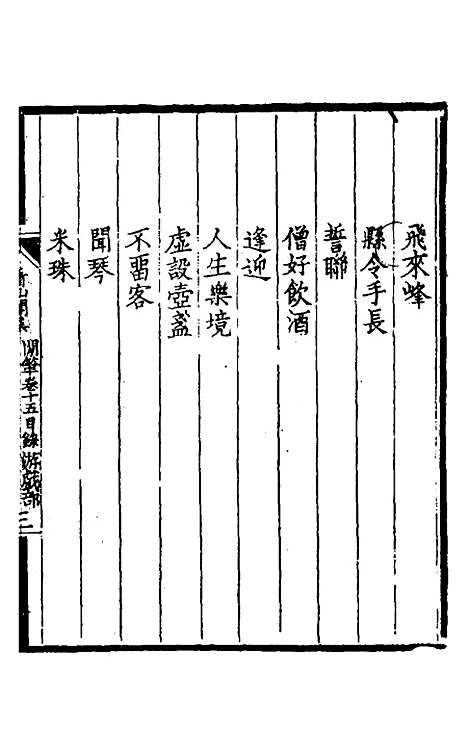 飛來峰
縣令手長
誓聯
僧好飲酒
逢迎
人生樂境
虛設壺盞
不畱客
聞琴
米珠
閒筆卷十五目錄 遊戲部 二